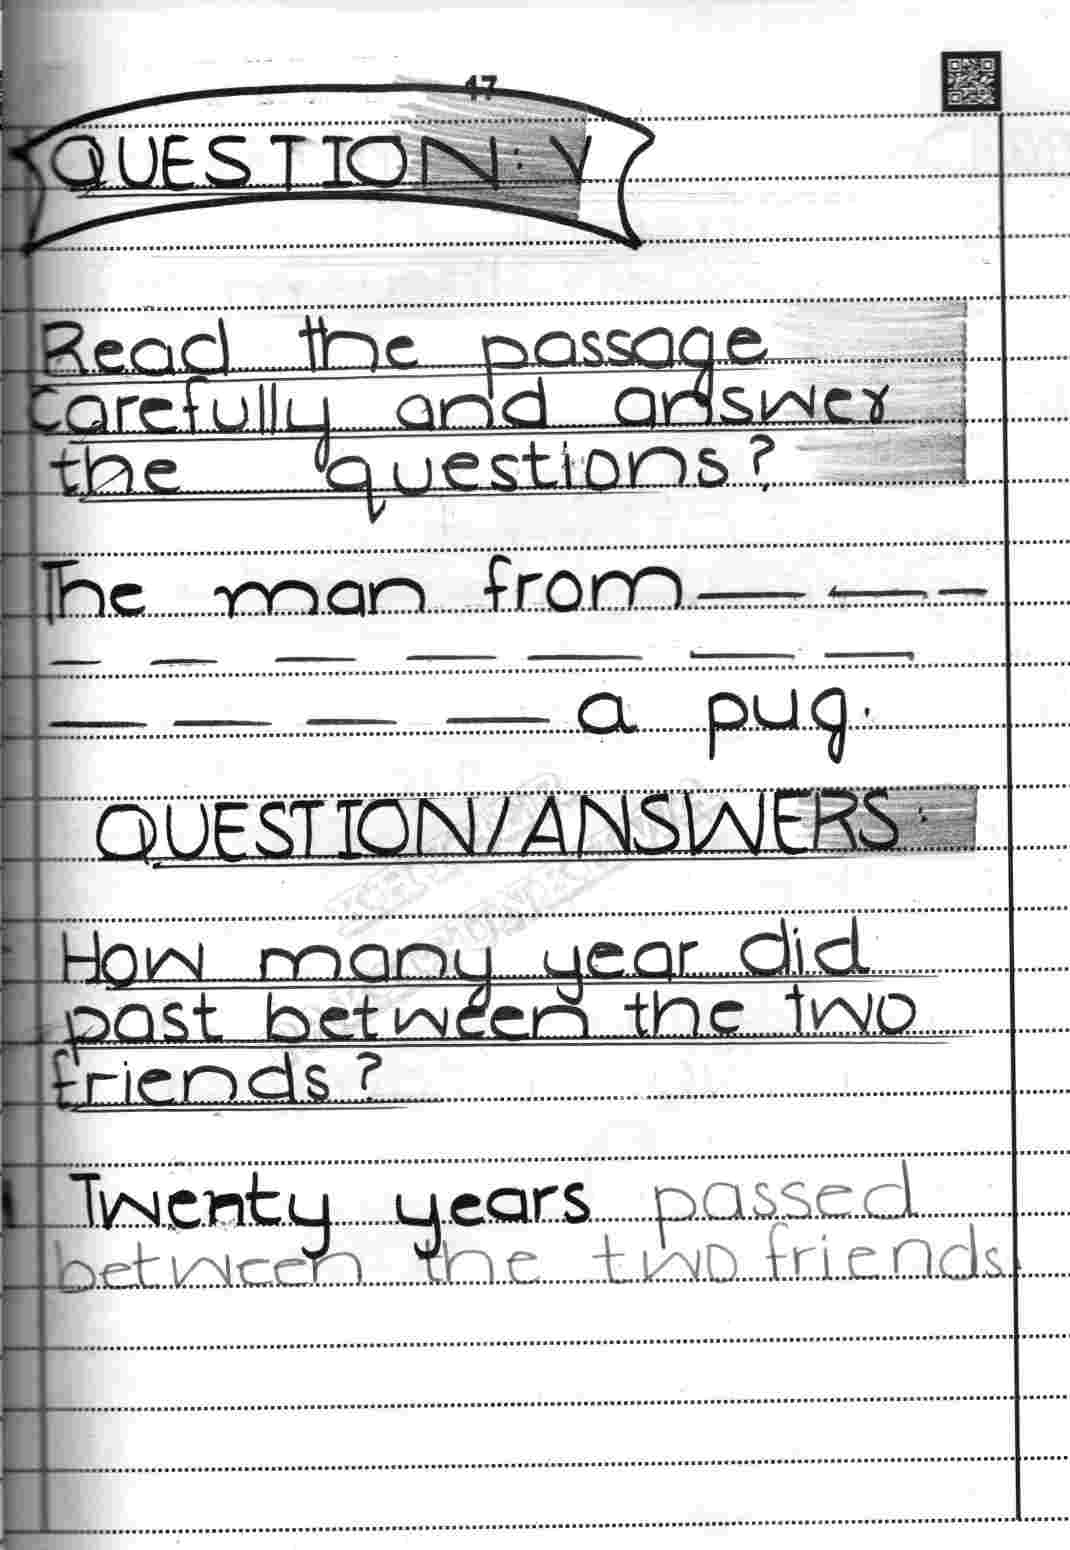 47
QUESTION: V
Read the passage
carefully and answer
the questions?
The man from — — —
— — — — — — —
— — — — a pug.
QUESTION/ANSWERS:
How many year did
past between the two
friends?
Twenty years passed
between the two friends.